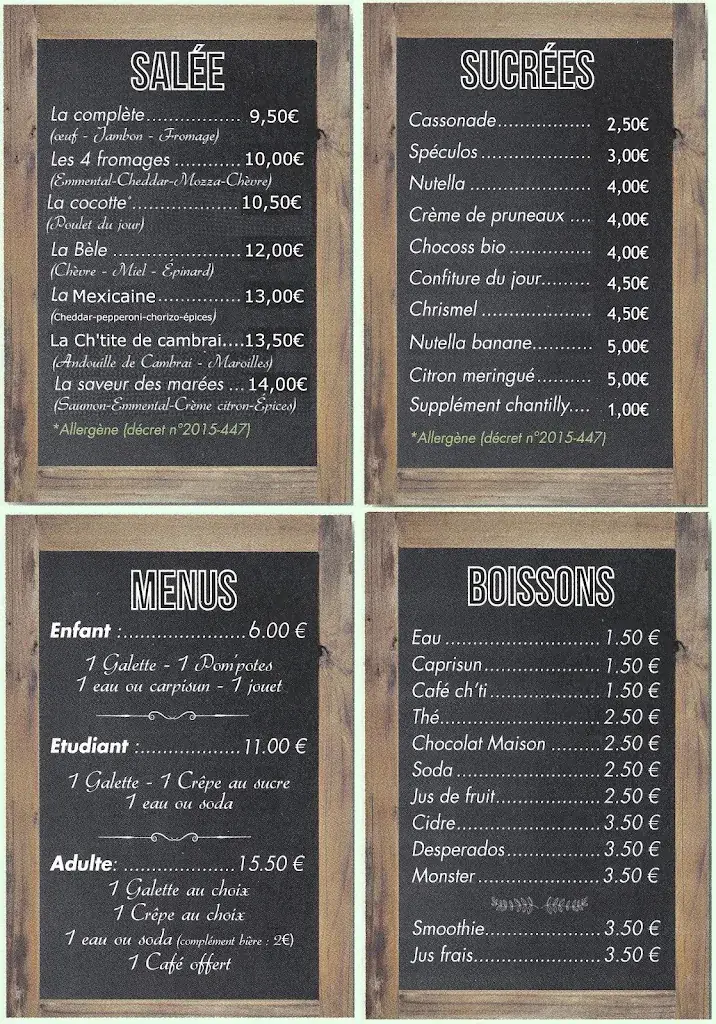 SALÉE
La complète..................... 9,50€
(œuf - Jambon - Fromage)
Les 4 fromages ............ 10,00€
(Emmental-Cheddar-Mozza-Chèvre)
La cocotte*.................... 10,50€
(Poulet du jour)
La Bèle ....................... 12,00€
(Chèvre - Miel - Épinard)
La Mexicaine............... 13,00€
(Cheddar-pepperoni-chorizo-épices)
La Ch'tite de cambrai....13,50€
(Andouille de Cambrai - Maroilles)
La saveur des marées ... 14,00€
(Saumon-Emmental-Crème citron-Épices)
*Allergène (décret n°2015-447)
SUCRÉES
Cassonade................. 2,50€
Spéculos.................... 3,00€
Nutella ...................... 4,00€
Crème de pruneaux .... 4,00€
Chocoss bio ............... 4,00€
Confiture du jour......... 4,50€
Chrismel .................... 4,50€
Nutella banane........... 5,00€
Citron meringué.......... 5,00€
Supplément chantilly.... 1,00€
*Allergène (décret n°2015-447)
MENUS
Enfant :.......................6.00 €
1 Galette - 1 Pom'potes
1 eau ou carpisun - 1 jouet
Etudiant :..................11.00 €
1 Galette - 1 Crêpe au sucre
1 eau ou soda
Adulte: ....................15.50 €
1 Galette au choix
1 Crêpe au choix
1 eau ou soda (complément bière : 2€)
1 Café offert
BOISSONS
Eau............................1.50 €
Caprisun.....................1.50 €
Café ch'ti....................1.50 €
Thé.............................2.50 €
Chocolat Maison .........2.50 €
Soda..........................2.50 €
Jus de fruit...................2.50 €
Cidre..........................3.50 €
Desperados.................3.50 €
Monster ......................3.50 €
Smoothie.....................3.50 €
Jus frais.......................3.50 €